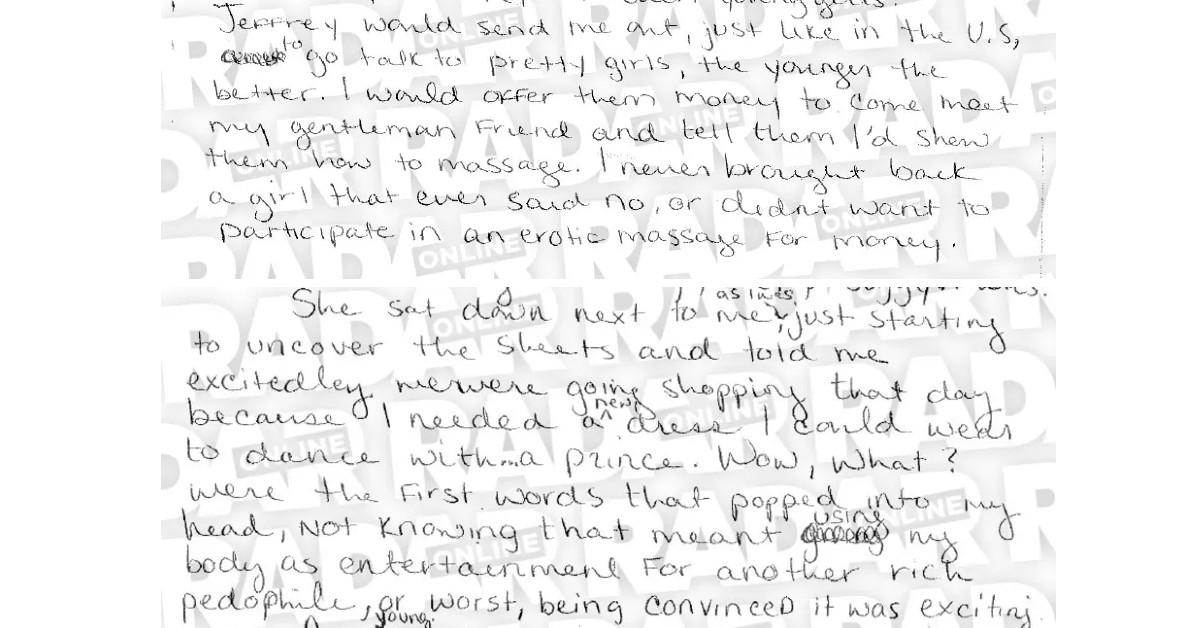 Jeffrey would send me out, just like in the U.S,
to go talk to pretty girls, the younger the
better. I would offer them money to come meet
my gentleman Friend and tell them I'd show
them how to massage. I never brought back
a girl that ever said no, or didnt want to
participate in an erotic massage For money.
She sat down next to me, just starting
to uncover the sheets and told me
excitedley we were going shopping that day
because I needed a new dress I could wear
to dance with...a prince. Wow, what?
were the First words that popped into my
head, Not Knowing that meant using my
body as entertainment For another rich
pedophile, or worst, being convinced it was exciting
young